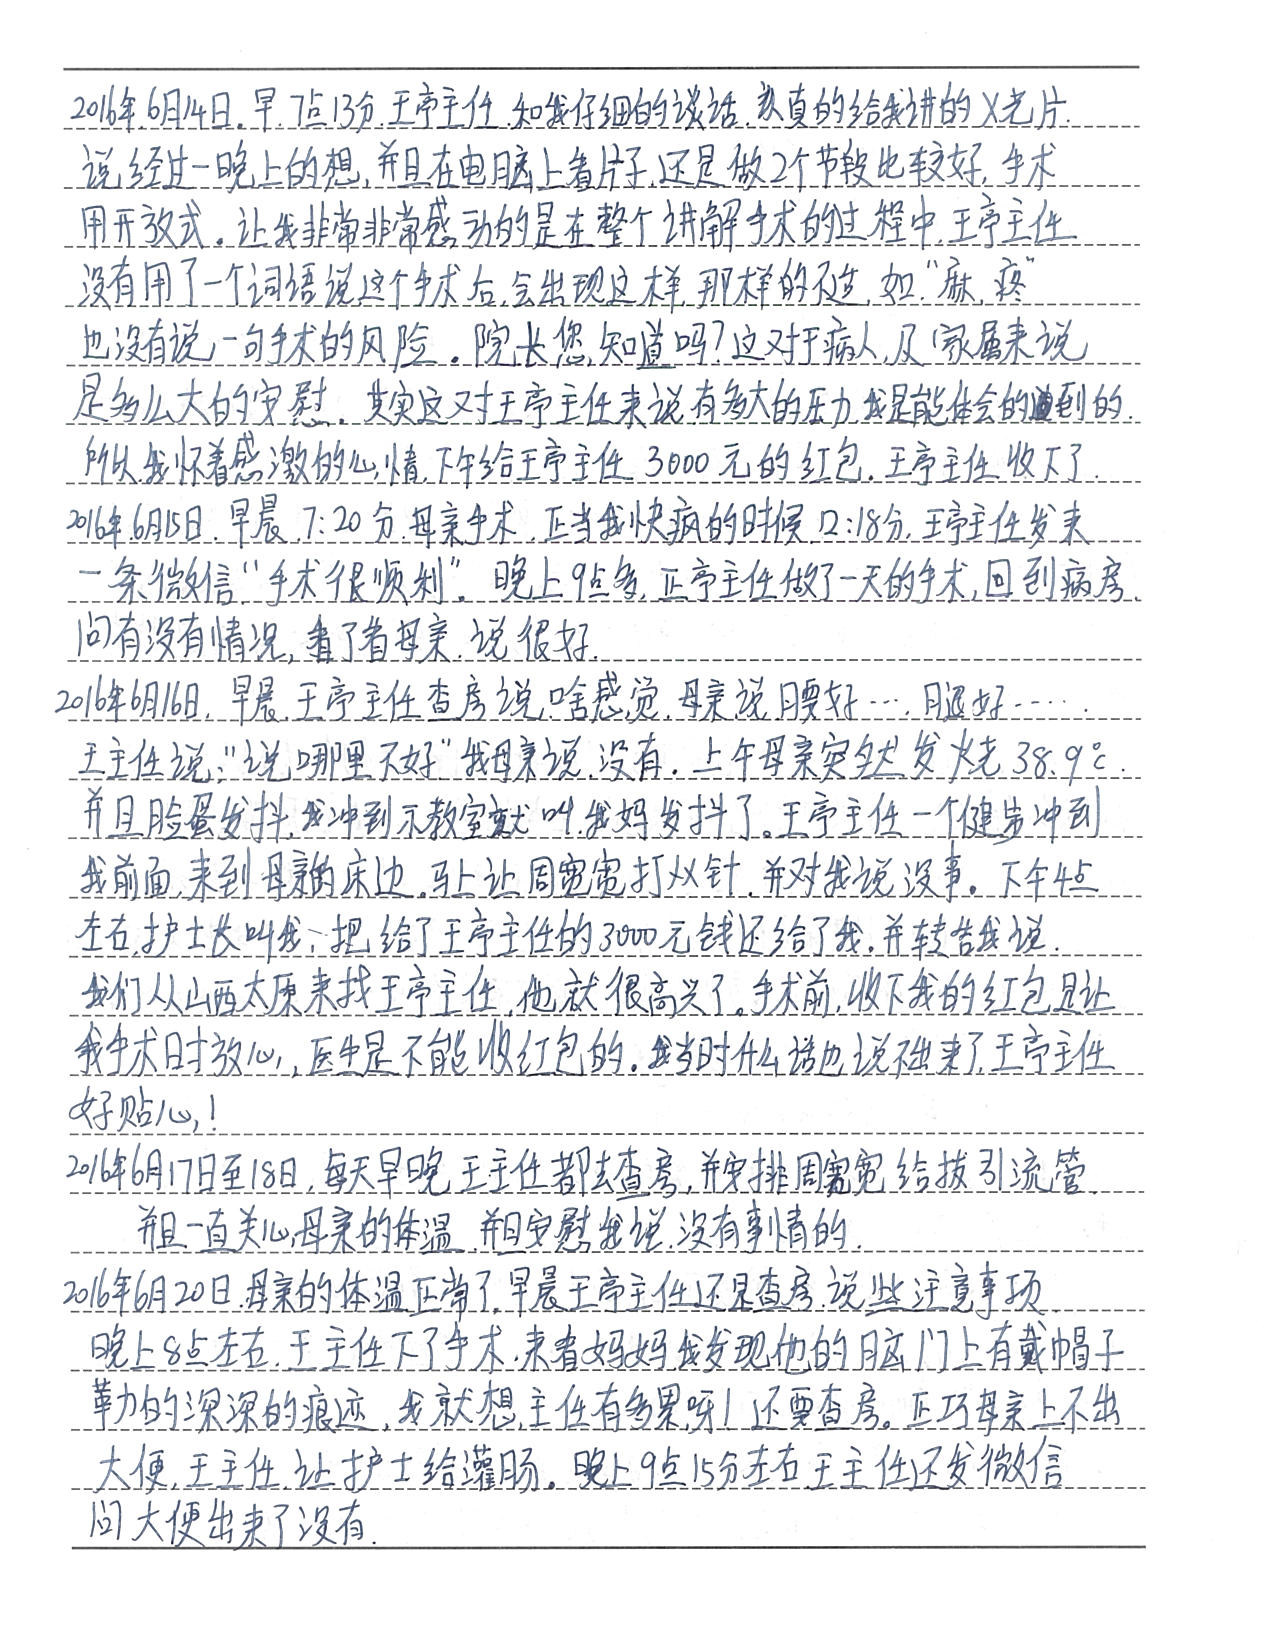 2016年6月14日.早.7点13分.王亭主任.和我仔细的谈话.认真的给我讲的X光片.
说.经过一晚上的想,并且在电脑上看片子.还是做2个节段比较好,手术
用开放式。让我非常非常感动的是在整个讲解手术的过程中,王亭主任
没有用了一个词语说这个手术后.会出现这样.那样的不适,如"麻,疼"
也没有说一句手术的风险。院长您知道吗?这对于病人及家属来说
是多么大的安慰。其实这对王亭主任来说有多大的压力我是能体会的到的.
所以我怀着感激的心情,下午给王亭主任3000元的红包.王亭主任收下了.
2016年6月15日.早晨7:20分.母亲手术.正当我快疯的时候12:18分.王亭主任发来
一条微信"手术很顺利"。晚上9点多,王亭主任做了一天的手术,回到病房.
问有没有情况,看了看母亲.说很好.
2016年6月16日.早晨.王亭主任查房说,啥感觉.母亲说腰好….腿好……
王主任说:"说哪里不好"我母亲说.没有。上午母亲突然发烧38.9℃.
并且脸蛋发抖.我冲到示教室就叫.我妈发抖了。王亭主任一个健步冲到
我前面,来到母亲的床边.马上让周宽宽打 针.并对我说没事。下午4点
左右,护士长叫我,把给了王亭主任的3000元钱还给了我.并转告我说.
我们从山西太原来找王亭主任.他就很高兴了。手术前,收下我的红包是让
我手术时放心,医生是不能收红包的。我当时什么话也说不出来了,王亭主任
好贴心!
2016年6月17日至18日,每天早晚王主任都去查房,并安排周宽宽给拔引流管.
并且一直关心母亲的体温.并且安慰我说.没有事情的.
2016年6月20日.母亲的体温正常了.早晨王亭主任还是查房.说些注意事项.
晚上8点左右.王主任下了手术.来看妈妈我发现他的脑门上有戴帽子
勒的深深的痕迹,我就想主任有多累呀!还要查房。正巧母亲上不出
大便,王主任.让护士给灌肠。晚上9点15分左右王主任还发微信
问大便出来了没有.